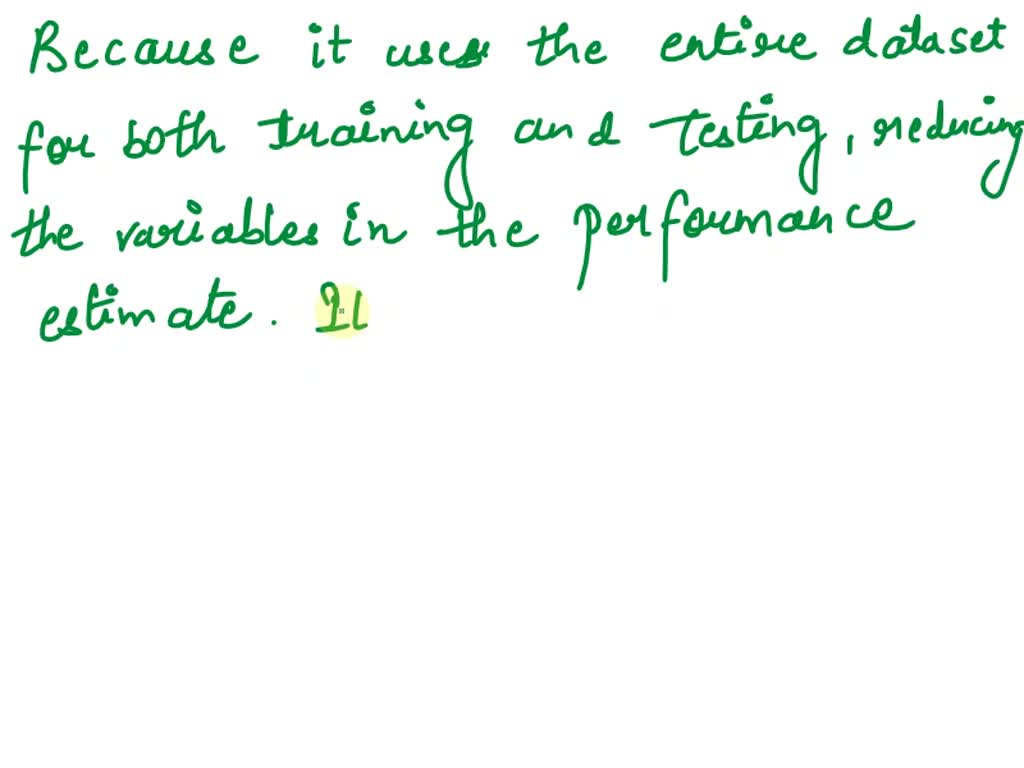 Because it uses the entire dataset
for both training and testing, reducing
the variables in the performance
estimate.